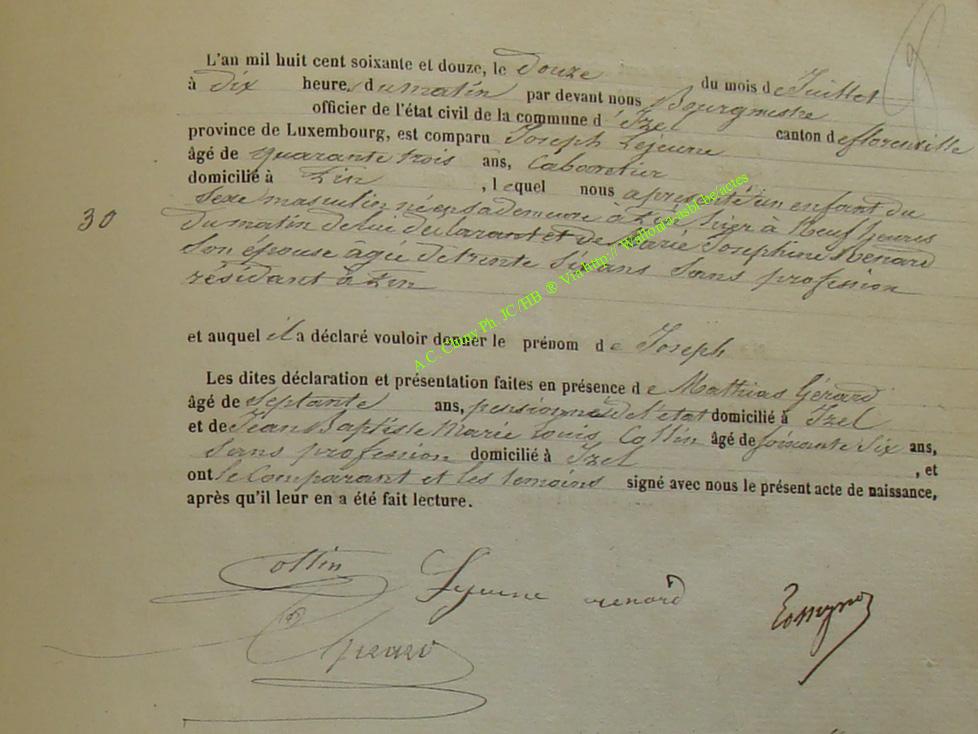 L'an mil huit cent soixante et douze, le douze du mois de Juillet
à dix heures du matin par devant nous Bourgmestre
officier de l'état civil de la commune d'Izel canton de florenville
province de Luxembourg, est comparu Joseph Lejeune
âgé de quarante trois ans, Cabaretier
domicilié à , lequel nous a présenté un enfant du
30
Sexe masculin né en sa demeure à hier à Neuf heures
du matin de lui déclarant et de Marie Josephine Renard
Son épouse âgée de trente Six ans Sans profession
résidant à
et auquel il a déclaré vouloir donner le prénom de Joseph
Les dites déclaration et présentation faites en présence de Mathias Gérard
âgé de Septante ans, pensionné de l'état domicilié à Izel
et de Jean Baptiste Marie Louis Collin âgé de Soixante Six ans,
Sans profession domicilié à Izel , et
ont le Comparant et les temoins signé avec nous le présent acte de naissance,
après qu'il leur en a été fait lecture.
Collin Lejeune renard
Gérard
A C. Chiny Ph. JC/HB ® Via http:// Wallonia-asbl.be/actes